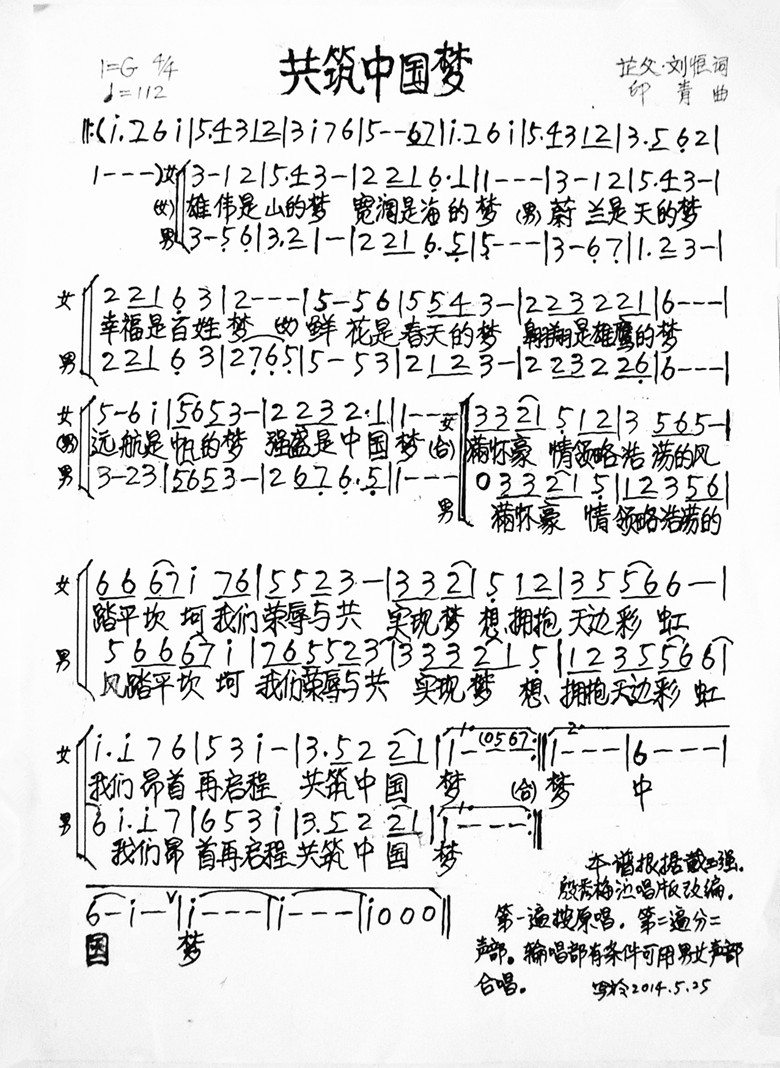 共筑中国梦
1=G 4/4
♩=112
芷父·刘恒词
印青 曲
‖:(i.7 6 i|5.4 3 1 2|3 i 7 6|5 - - 6 7|i.7 6 i|5.4 3 1 2|3.5 6 2|
1 - - -)女 3 - 1 2|5.4 3 -|2 2 1 6.1|1 - - -|3 - 1 2|5.4 3 -|
(女) 雄伟是山的梦 宽阔是海的梦 (男) 蔚兰是天的梦
男 3 - 5 6|3.2 1 -|2 2 1 6.5|5 - - -|3 - 6 7|1.2 3 -|
女 2 2 1 6 3|2 - - -|5 - 5 6|5 5 4 3 -|2 2 3 2 2 1|6 - - -|
幸福是百姓梦 (女) 鲜花是春天的梦 翱翔是雄鹰的梦
男 2 2 1 6 3|2 7 6 5|5 - 5 3|2 1 2 3 -|2 2 3 2 2 6|6 - - -|
女 5 - 6 i|5 6 5 3 -|2 2 3 2.1|1 - - -|女 3 3 2 1 5 1 2|3 5 6 5 -|
(男) 远航是帆的梦 强盛是中国梦 (合) 满怀豪 情领略浩 荡的风
男 3 - 2 3|5 6 5 3 -|2 6 7 6.5|1 - - -|男 0 3 3 2 1 5|1 2 3 5 6|
满怀豪 情 领略浩荡的
女 6 6 6 7 i 7 6|5 5 2 3 -|3 3 2 1 5 1 2|3 5 5 6 6 -|
踏平坎 坷我们荣辱与共 实现梦 想,拥抱 天边彩 虹
男 5 6 6 6 7 i|7 6 5 5 2 3|3 3 3 2 1 5|1 2 3 5 5 6 6|
风踏平坎 坷 我们荣辱与共 实现 梦 想、拥抱天边彩 虹
女 i.i 7 6|5 3 i -|3.5 2 2 1|1. 1 - (0 5 6 7:‖2. 1 - - -|6 - - -|
我们昂首再启程 共筑中国 梦 (合) 梦 中
男 6 i.i 7|6 5 3 i|3.5 2 2 1|1 - - -:‖
我们昂 首再启程 共筑中国 梦
6 - i - ∨|i - - -|i - - -|i 0 0 0‖
国 梦
本谱根据戴玉强、
殷秀梅演唱版改编。
第一遍按原唱。第二遍分二
声部。轮唱部有条件可用男女声部
合唱。
2014.5.25